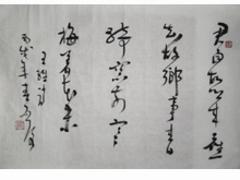 君自故鄉来應
知故鄉事来日
綺窗前寒
梅著花未
王維詩
丙戌年春